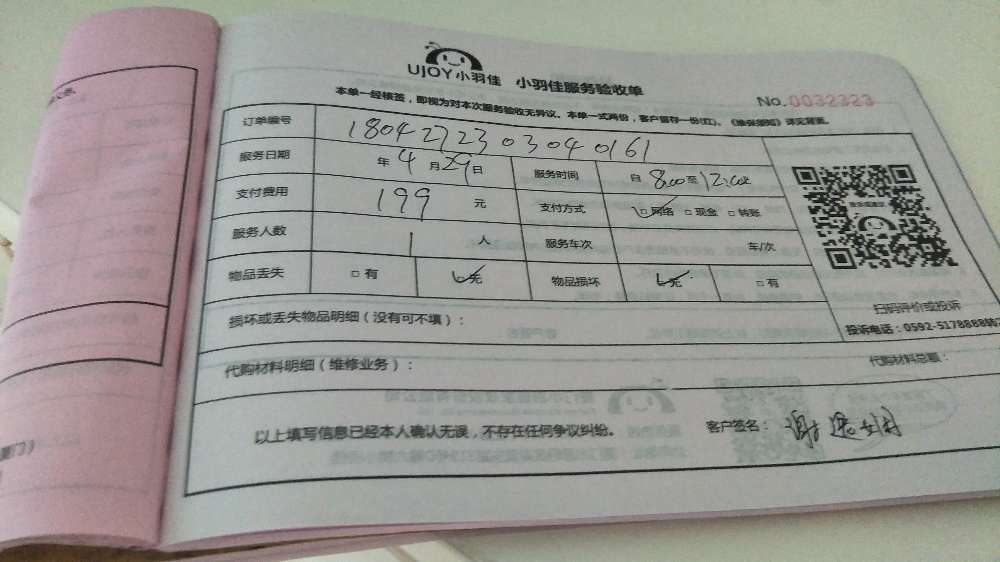 UJOY小羽佳 小羽佳服务验收单
No.0032323
本单一经核签，即视为对本次服务验收无异议。本单一式两份，客户留存一份(红)。《维保须知》详见背面。
订单编号 1804272303040161
服务日期 年 4 月 29 日 服务时间 自 8:00 至 12:00
支付费用 199 元 支付方式 □网络 □现金 □转账
服务人数 1 人 服务车次 车/次
物品丢失 □有 □无 物品损坏 □无 □有
扫码评价或投诉
损坏或丢失物品明细（没有可不填）：
投诉电话：0592-5178888转
代购材料明细（维修业务）： 代购材料总额：
以上填写信息已经本人确认无误，不存在任何争议纠纷。 客户签名： 谢